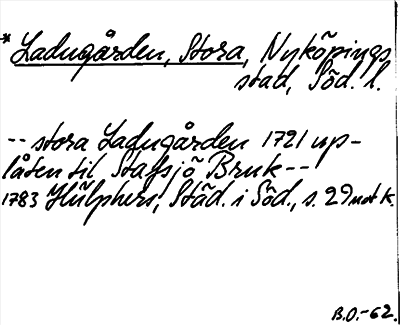 * Ladugården, Stora, Nyköpings
stad, Söd. l.
-- stora Ladugården 1721 up-
låten til Stafsjö Bruk --
1783 Hülphers, Städ. i Söd., s. 29 not k.
B.O.-62.